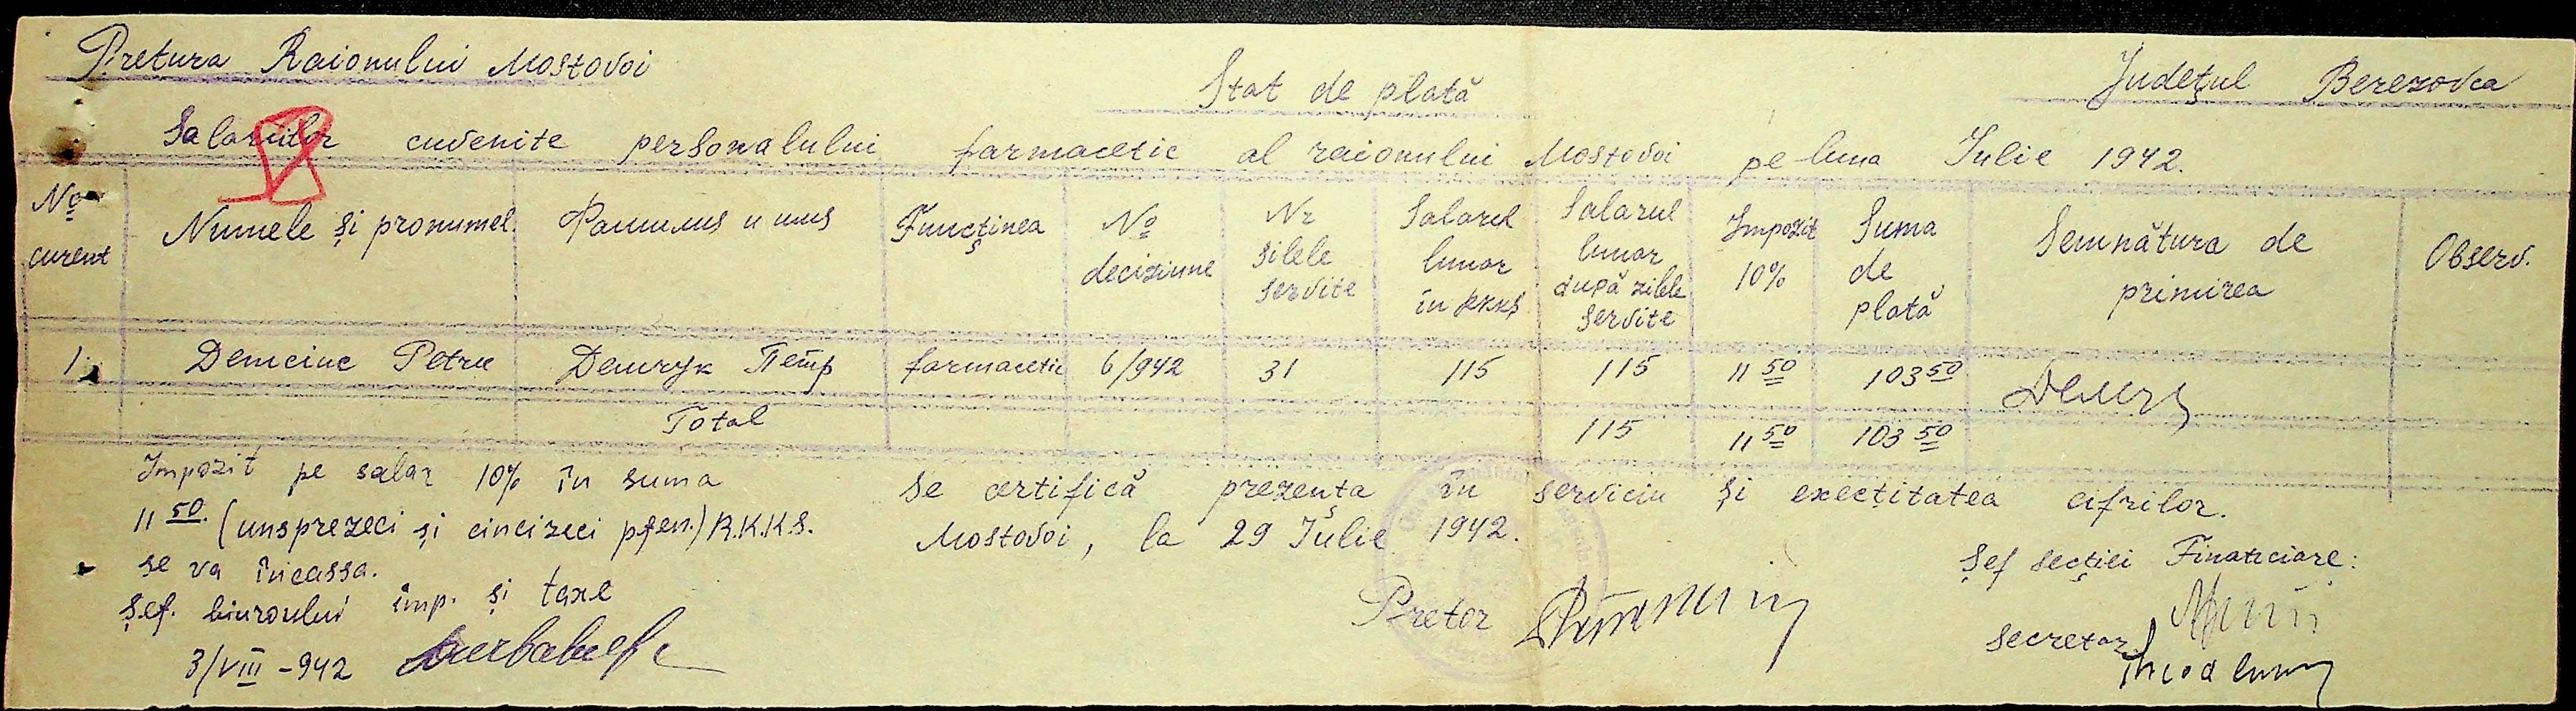 Pretura Raionului Mostovoi
Stat de plată
Județul Berezovca
Salariilor cuvenite personalului farmacetic al raionului Mostovoi pe luna Iulie 1942.
No curent
Numele și pronumel.
Фамилия и имя
Funcținea
No deciziune
Nr silele servite
Salarul lunar în RKKS
Salarul lunar după zilele servite
Impozit 10%
Suma de plată
Semnătura de primirea
Observ.
1. Demciuc Petru Демчук Петр farmacetic 6/942 31 115 115 11 50 103 50
Total 115 11 50 103 50
Impozit pe salar 10% în suma
11 50. (unsprezeci și cincizeci pfen.) R.K.K.S.
se va încassa.
Șef. biuroului imp. și taxe
3/VIII -942
Se certifică prezența în serviciu și exectitatea cifrilor.
Mostovoi, la 29 Iulie 1942.
Pretor
Șef secției Financiare:
Secretar